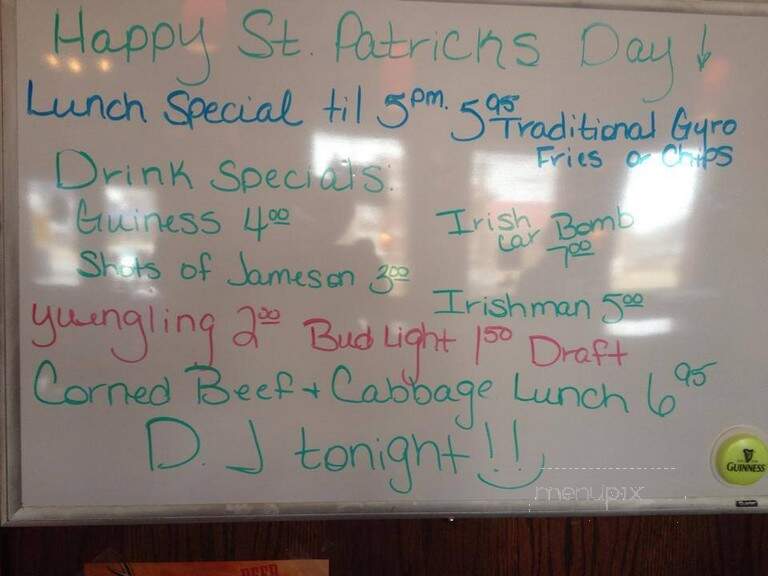 Happy St. Patricks Day ↓
Lunch Special til 5pm. 5 95 Traditional Gyro
Fries or Chips
Drink Specials:
Guiness 4 00
Irish Car Bomb 7 00
Shots of Jameson 3 00
Irishman 5 00
Yuengling 2 00 Bud Light 1 50 Draft
Corned Beef + Cabbage Lunch 6 95
D.J tonight!!
GUINNESS
menupix
BEER